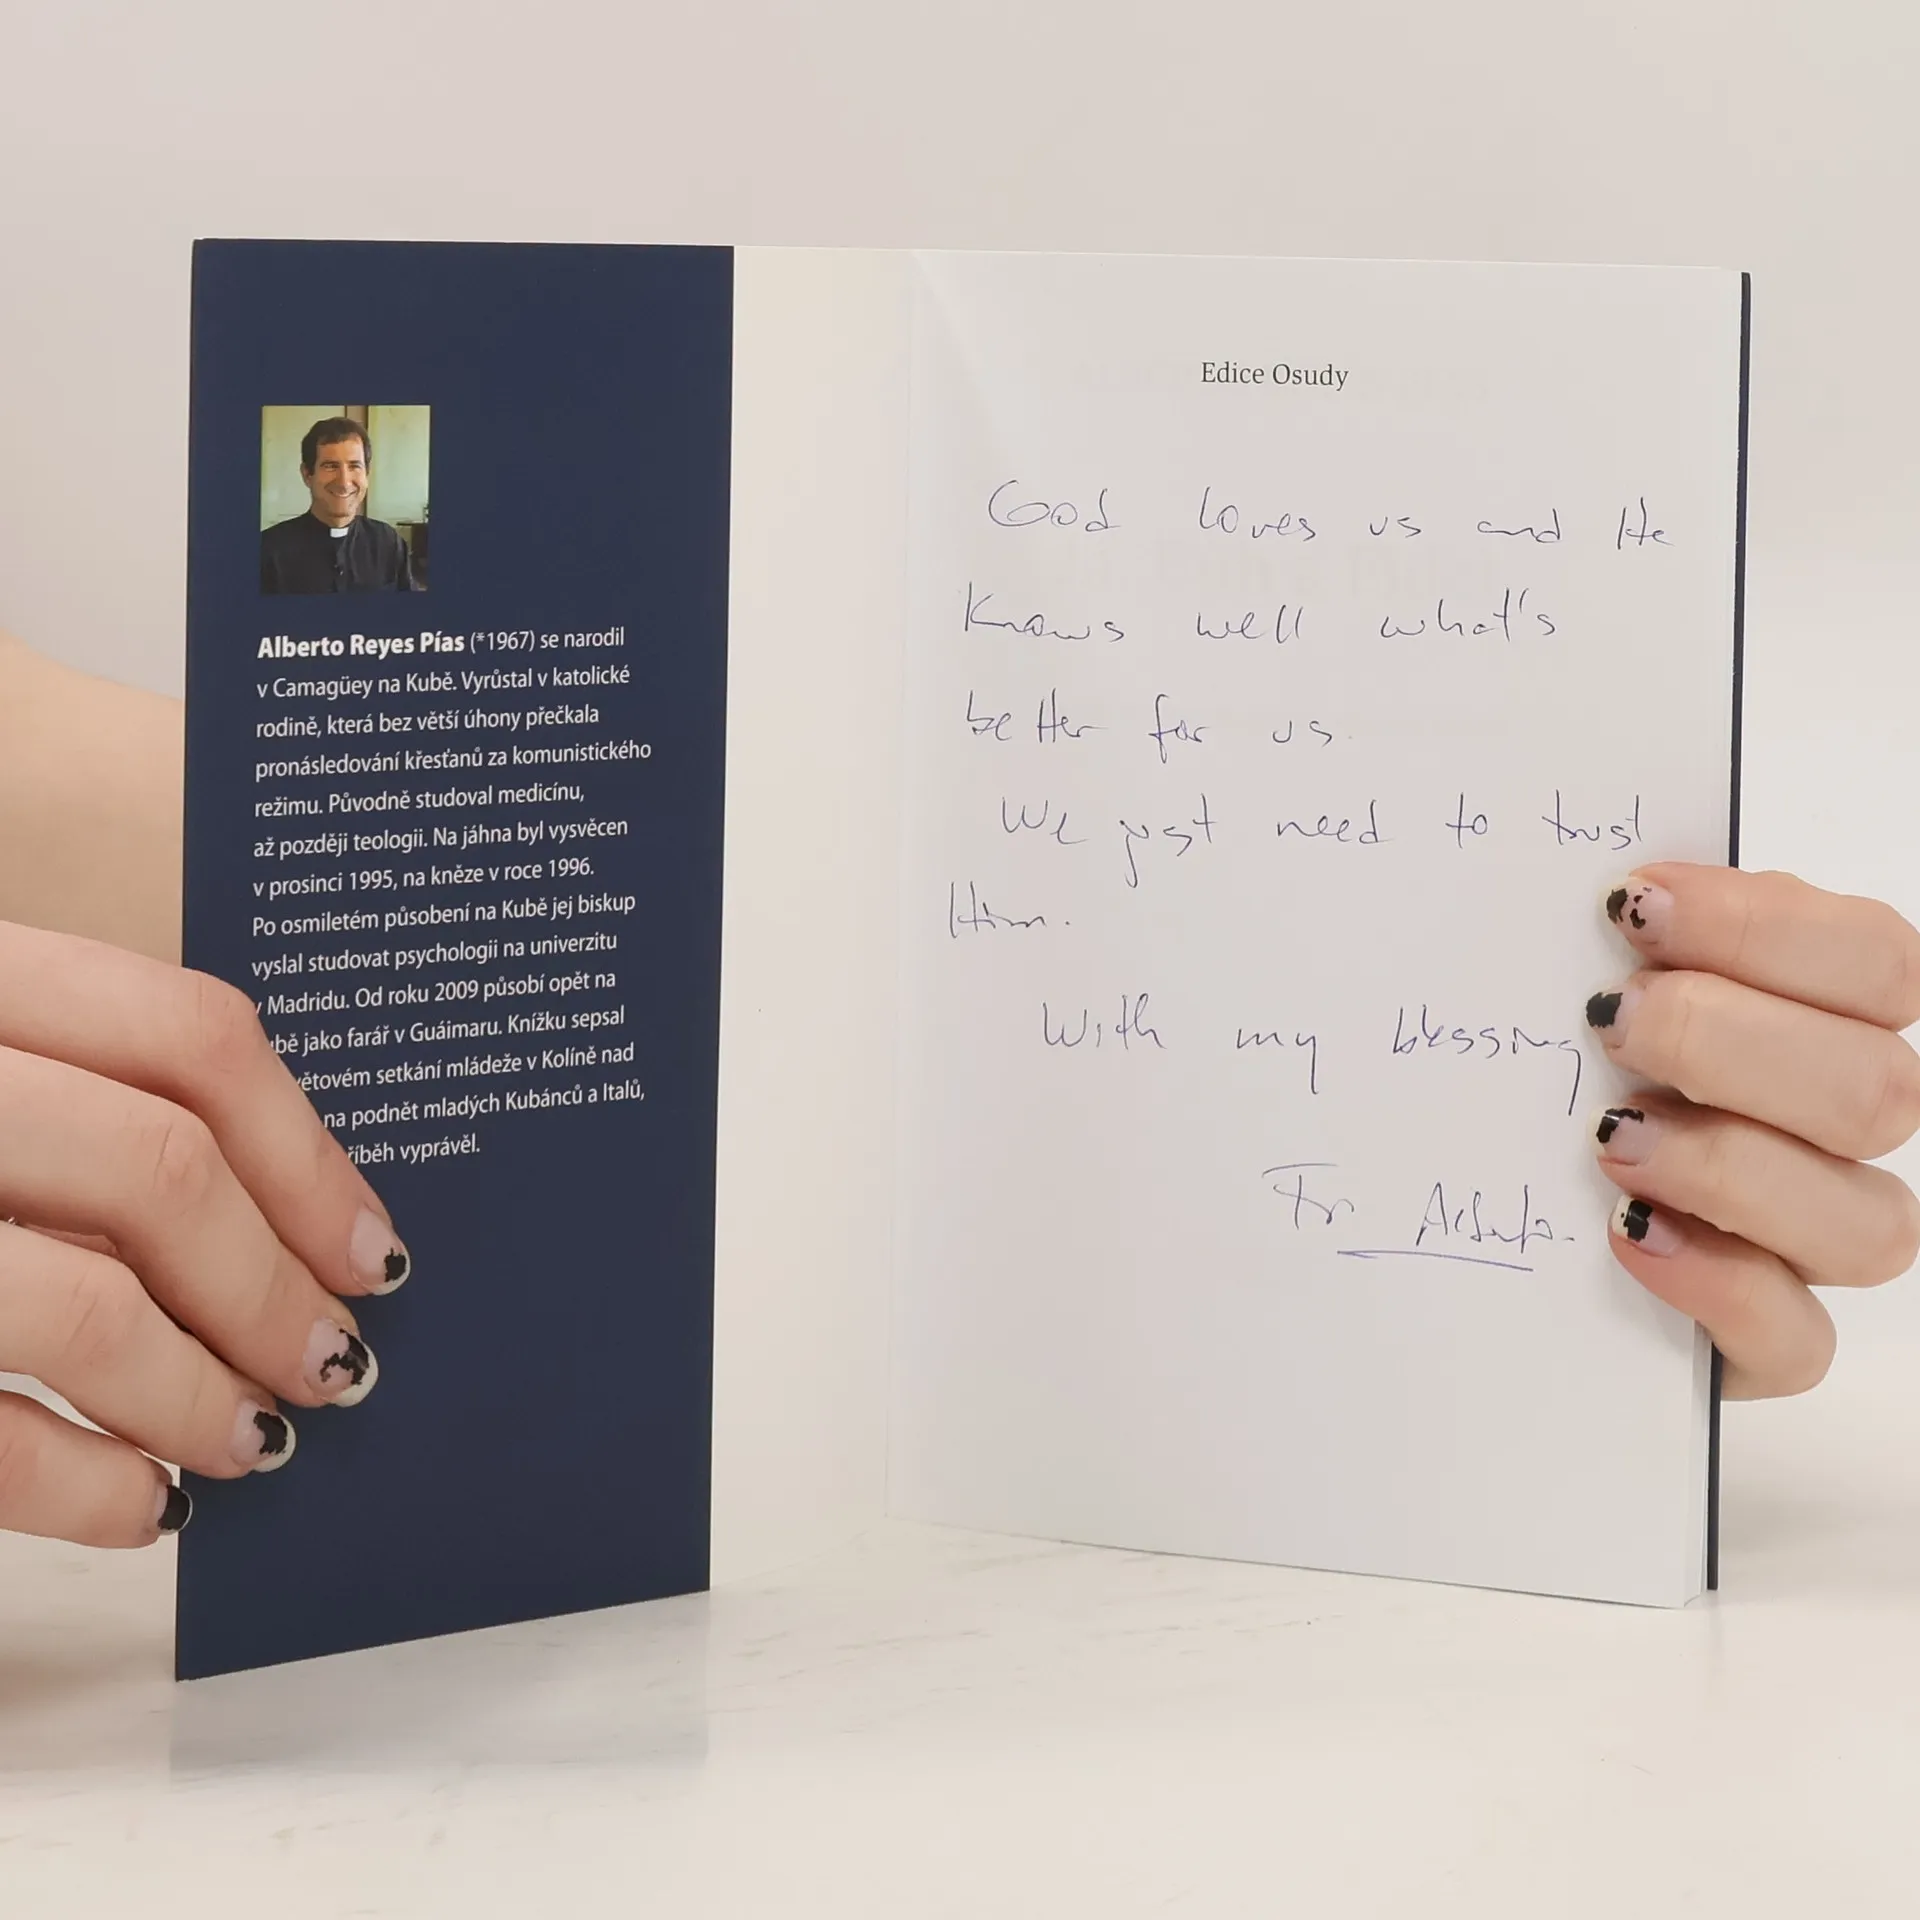 Alberto Reyes Pías (*1967) se narodil
v Camagüey na Kubě. Vyrůstal v katolické
rodině, která bez větší úhony přečkala
pronásledování křesťanů za komunistického
režimu. Původně studoval medicínu,
až později teologii. Na jáhna byl vysvěcen
v prosinci 1995, na kněze v roce 1996.
Po osmiletém působení na Kubě jej biskup
vyslal studovat psychologii na univerzitu
v Madridu. Od roku 2009 působí opět na
jako farář v Guáimaru. Knížku sepsal
setkání mládeže v Kolíně nad
na podnět mladých Kubánců a Italů,
vyprávěl.
Edice Osudy
God loves us and He
knows well what's
better for us.
We just need to trust
Him.
With my blessing
Fr Alberto.